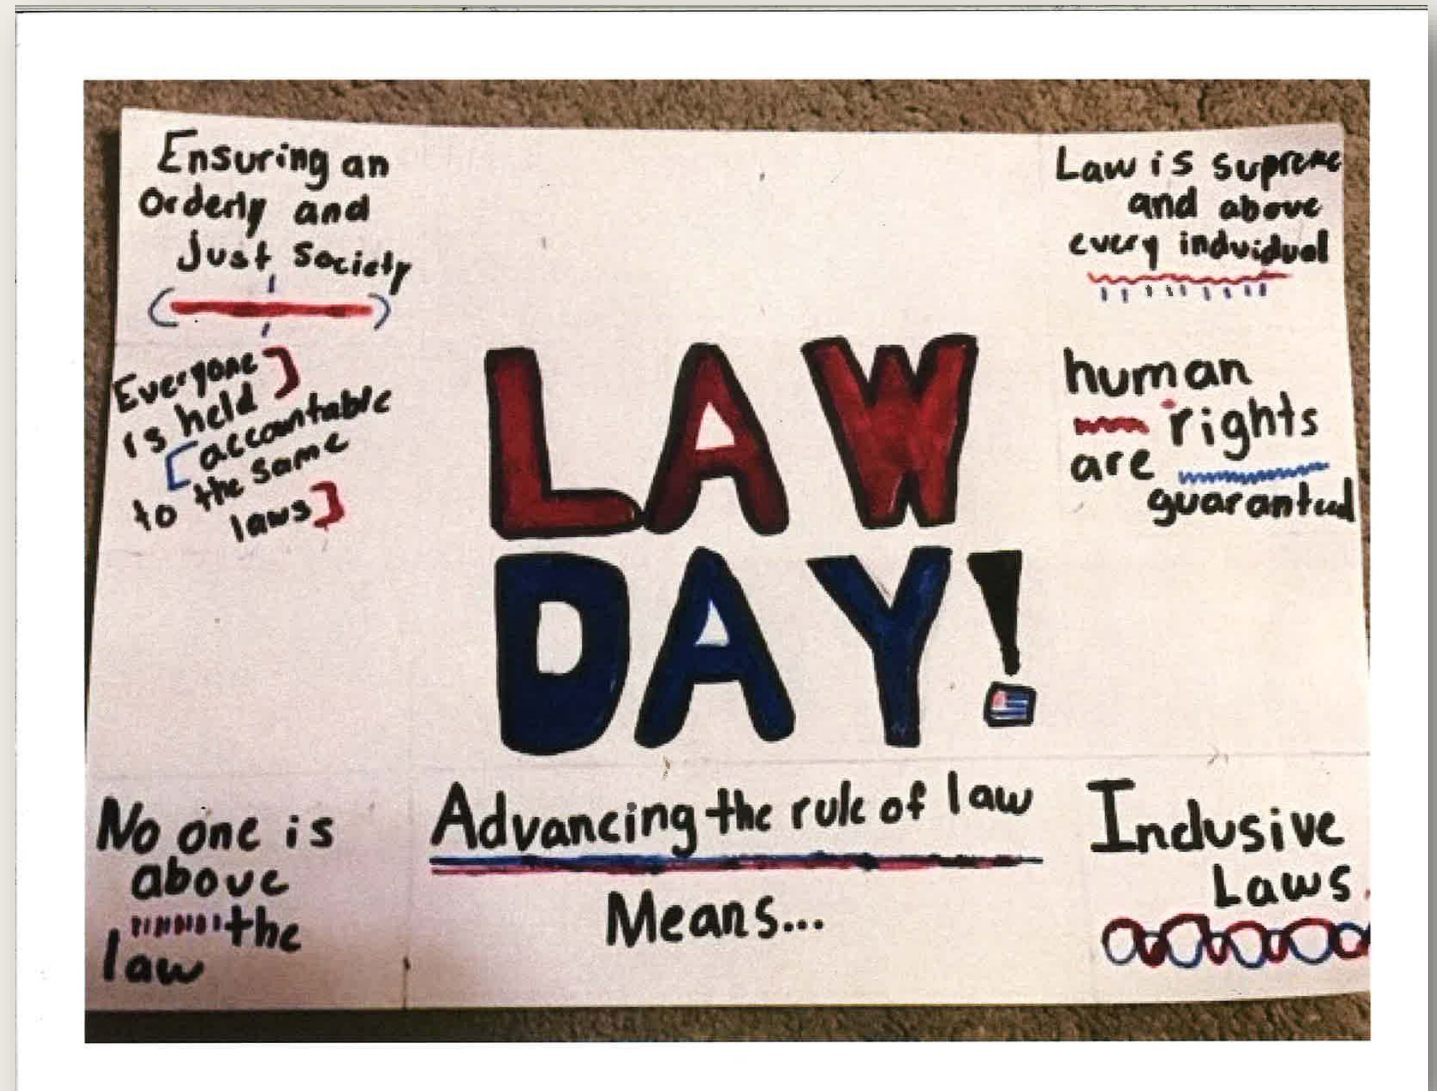 Ensuring an
Orderly and
Just Society
Everyone
is held
accountable
to the same
laws
LAW
DAY!
Law is supreme
and above
every indvidual
human
rights
are
guaranteed
No one is
above
the
law
Advancing the rule of law
Means...
Inclusive
Laws